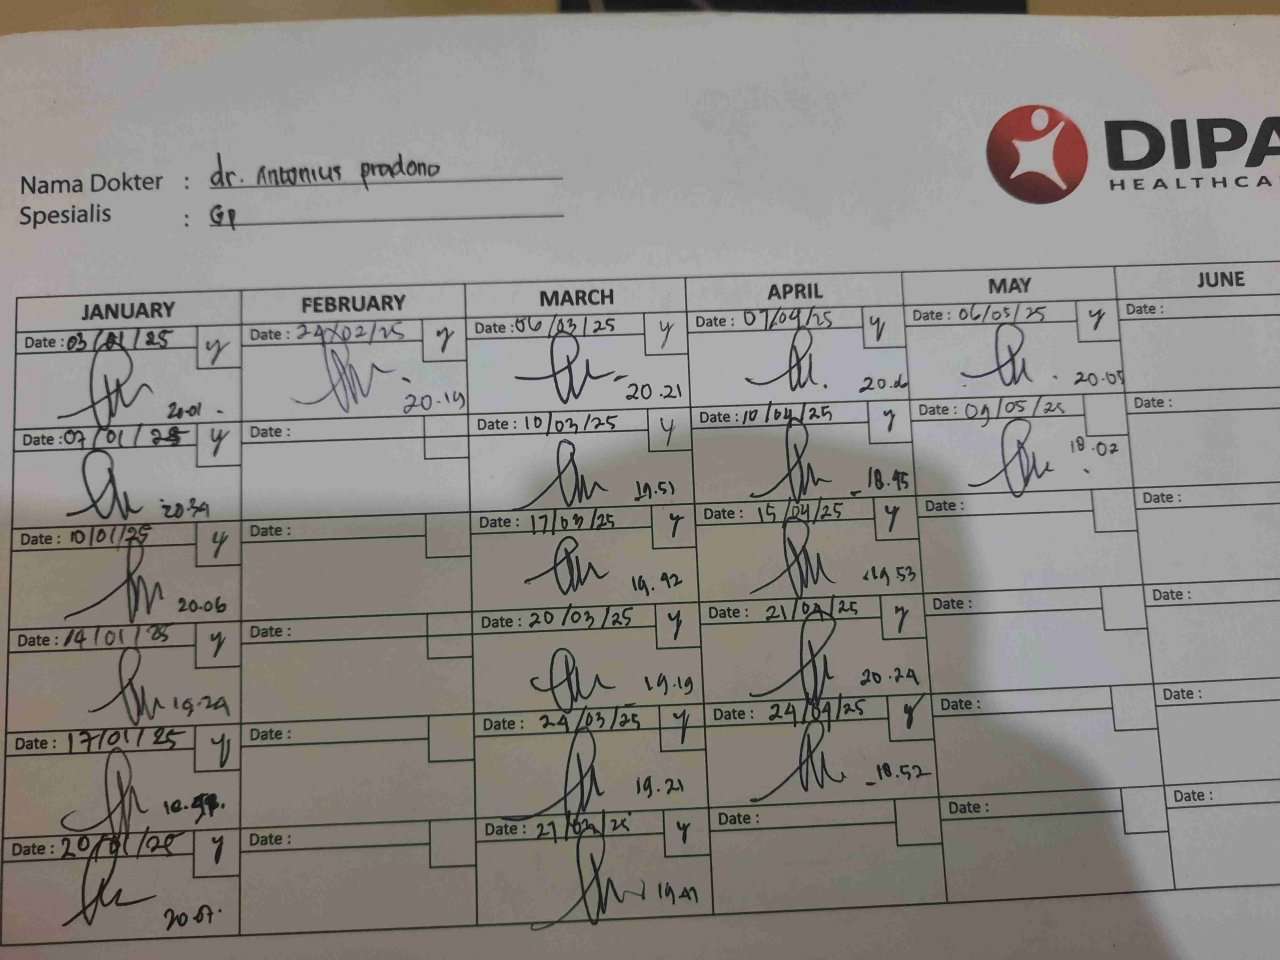 DIPA
HEALTHCA
Nama Dokter : dr. Antonius pradono
Spesialis : GP
JANUARY FEBRUARY MARCH APRIL MAY JUNE
Date : 03/01/25 y Date : 24/02/25 y Date : 06/03/25 y Date : 07/04/25 y Date : 06/05/25 y Date :
20.01 20.19 20.21 20.05
Date : 07/01/25 y Date : Date : 10/03/25 y Date : 10/04/25 y Date : 09/05/25 Date :
20.34 19.51 18.45 18.02
Date : 10/01/25 y Date : Date : 17/03/25 y Date : 15/04/25 y Date : Date :
20.06 19.42 19 53
Date : 14/01/25 y Date : Date : 20/03/25 y Date : 21/04/25 y Date : Date :
19.24 19.19 20.24
Date : 17/01/25 y Date : Date : 24/03/25 y Date : 24/04/25 y Date : Date :
19.21 18.52
Date : 20/01/25 y Date : Date : 27/03/25 y Date : Date : Date :
20.07 19.47